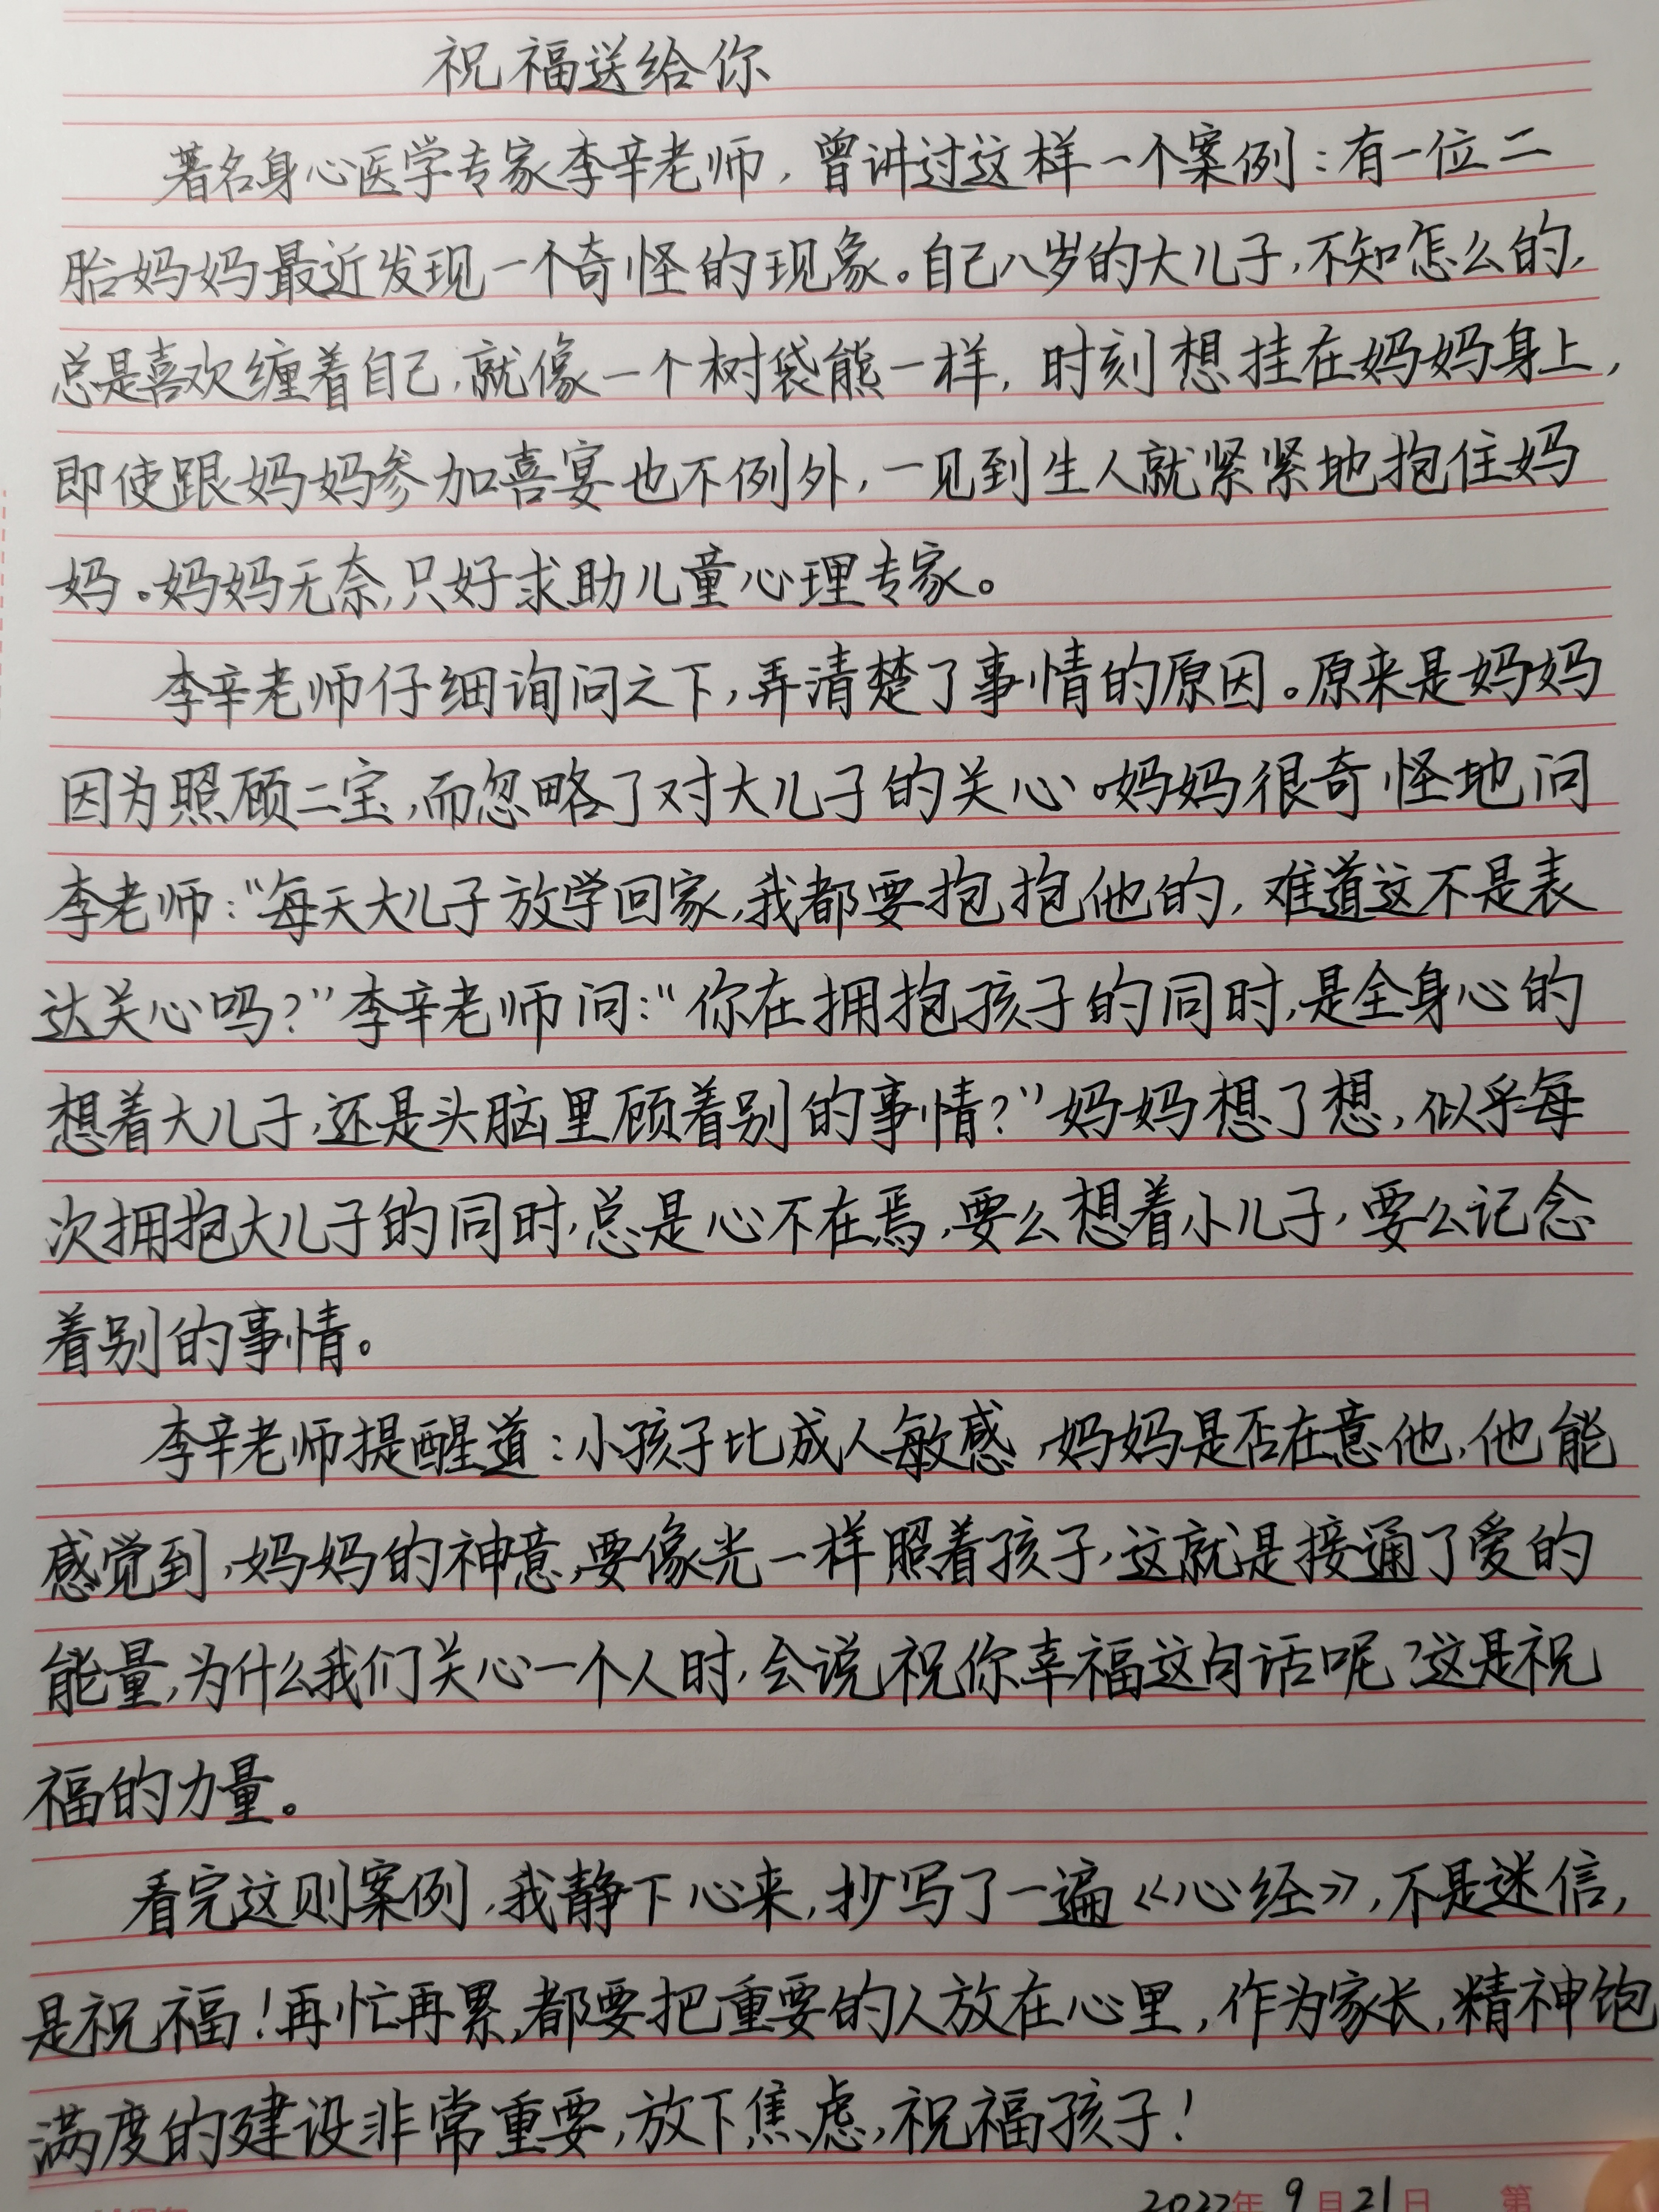 祝福送给你
著名身心医学专家李辛老师，曾讲过这样一个案例：有一位二
胎妈妈最近发现一个奇怪的现象。自己八岁的大儿子，不知怎么的，
总是喜欢缠着自己，就像一个树袋熊一样，时刻想挂在妈妈身上，
即使跟妈妈参加喜宴也不例外，一见到生人就紧紧地抱住妈
妈。妈妈无奈，只好求助儿童心理专家。
李辛老师仔细询问之下，弄清楚了事情的原因。原来是妈妈
因为照顾二宝，而忽略了对大儿子的关心。妈妈很奇怪地问
李老师：“每天大儿子放学回家，我都要抱抱他的，难道这不是表
达关心吗？”李辛老师问：“你在拥抱孩子的同时，是全身心的
想着大儿子，还是头脑里顾着别的事情？”妈妈想了想，似乎每
次拥抱大儿子的同时，总是心不在焉，要么想着小儿子，要么记念
着别的事情。
李辛老师提醒道：小孩子比成人敏感，妈妈是否在意他，他能
感觉到，妈妈的神意，要像光一样照着孩子，这就是接通了爱的
能量，为什么我们关心一个人时，会说祝你幸福这句话呢？这是祝
福的力量。
看完这则案例，我静下心来，抄写了一遍《心经》，不是迷信，
是祝福！再忙再累，都要把重要的人放在心里，作为家长，精神饱
满度的建设非常重要，放下焦虑，祝福孩子！
2022年9月21日 第